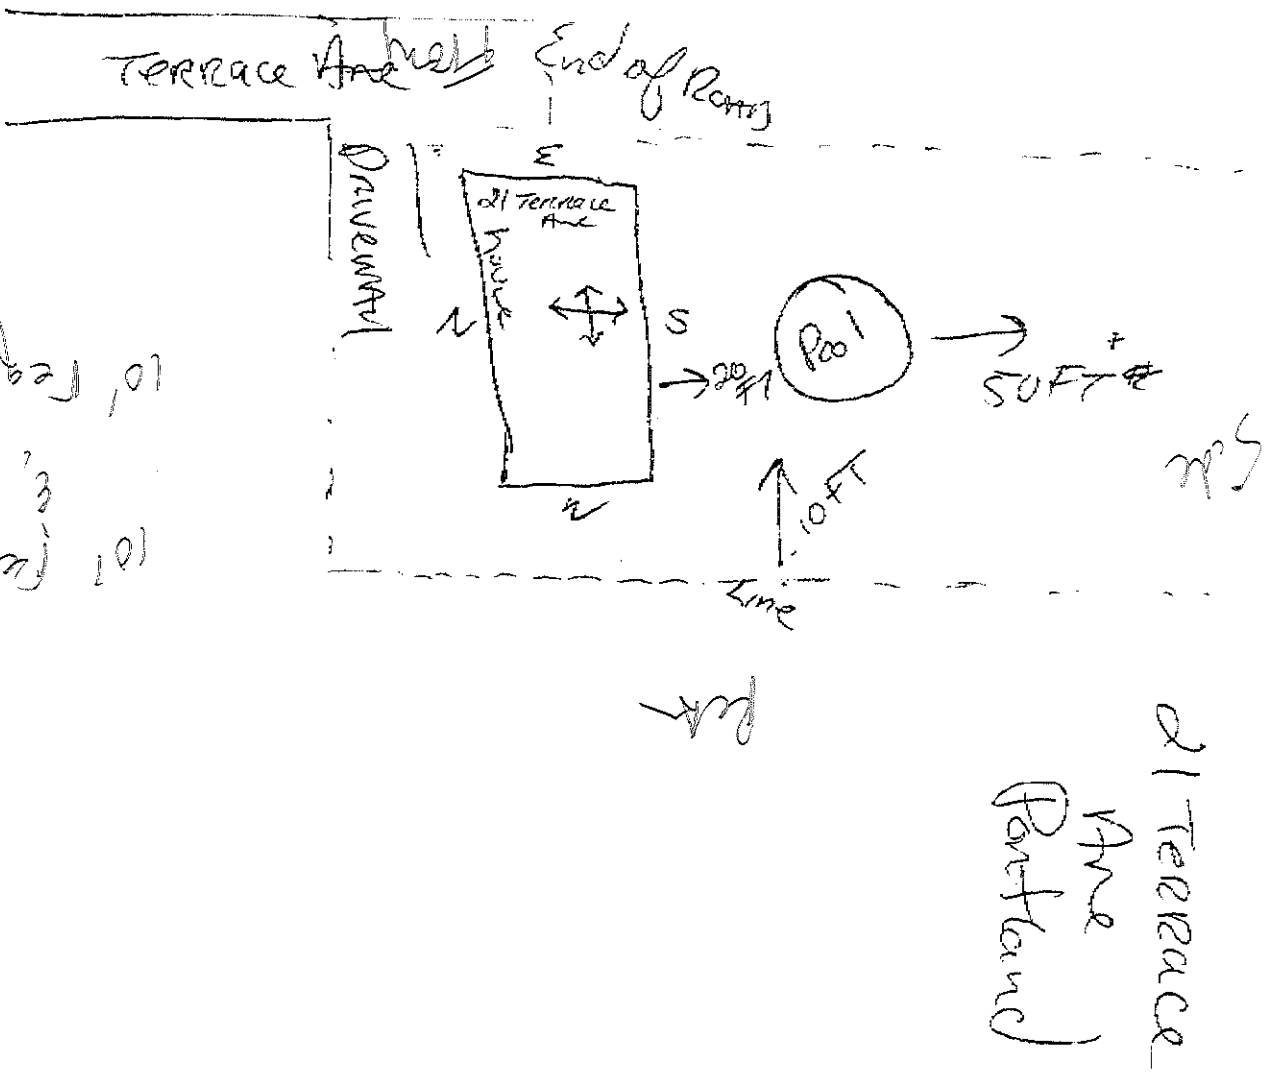 Terrace Ave
End of Road
Driveway
E
21 Terrace
Ave
house
N
S
Pool
20
FT
50 FT +
10 FT
Line
10' req
Side
21 Terrace
Ave
Portland